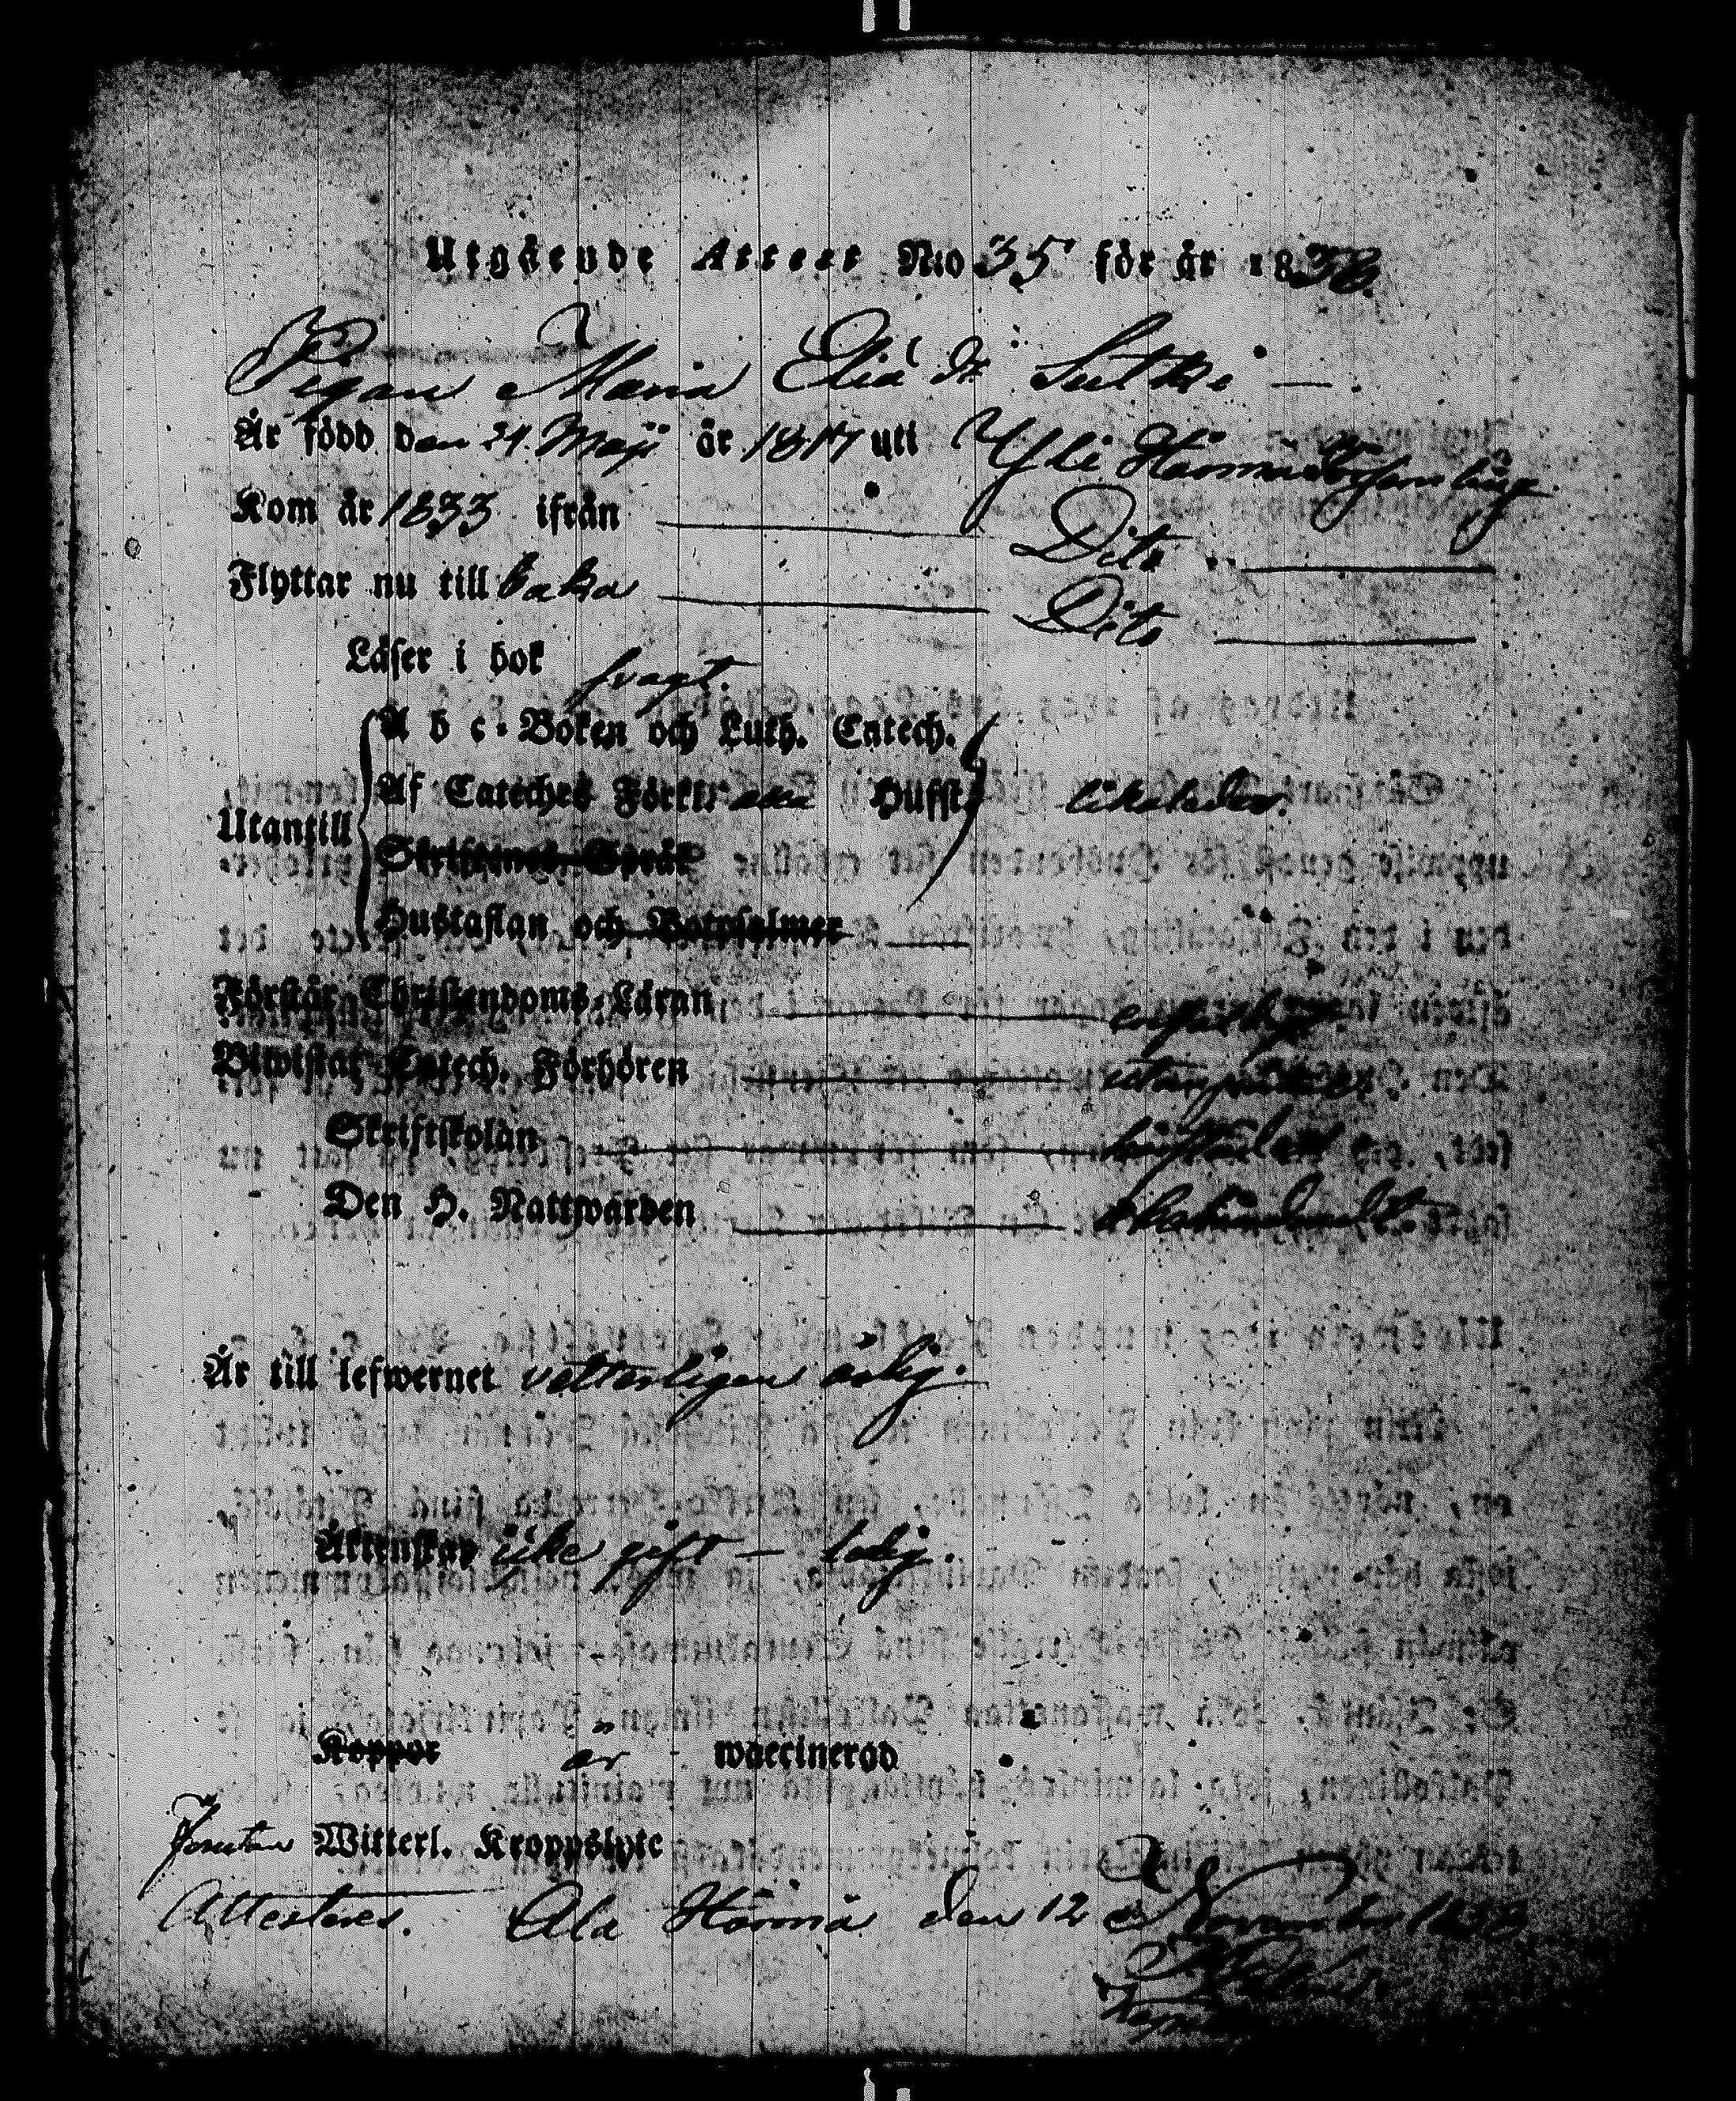 Utgående Attest N:o 35 för år 1836.
Pigan Maria Eliæ dr Sutki —.
Är född den 24 Maji år 1817 uti Yli Härmä
Kom år 1833 ifrån Dito
Flyttar nu till baka Dito
Läser i bok svagt.
A b c-Boken och Luth. Catech.
Af Cateches Förkl: Hufst.
Utantill likaledes.
Skriftenes Språk
Hustaflan och Botpsalmer
Förstår Christendoms-Läran enfaldigt
Biwistat Catech. Förhören
Skriftskolan
Den H. Nattwarden
Är till lefwernet vetterligen ärlig.
Äktenskap icke gift — ledig.
Koppor är waccinerad
Förutan Witterl. Kroppslyte
Attesteres. Ala Härmä den 12 November